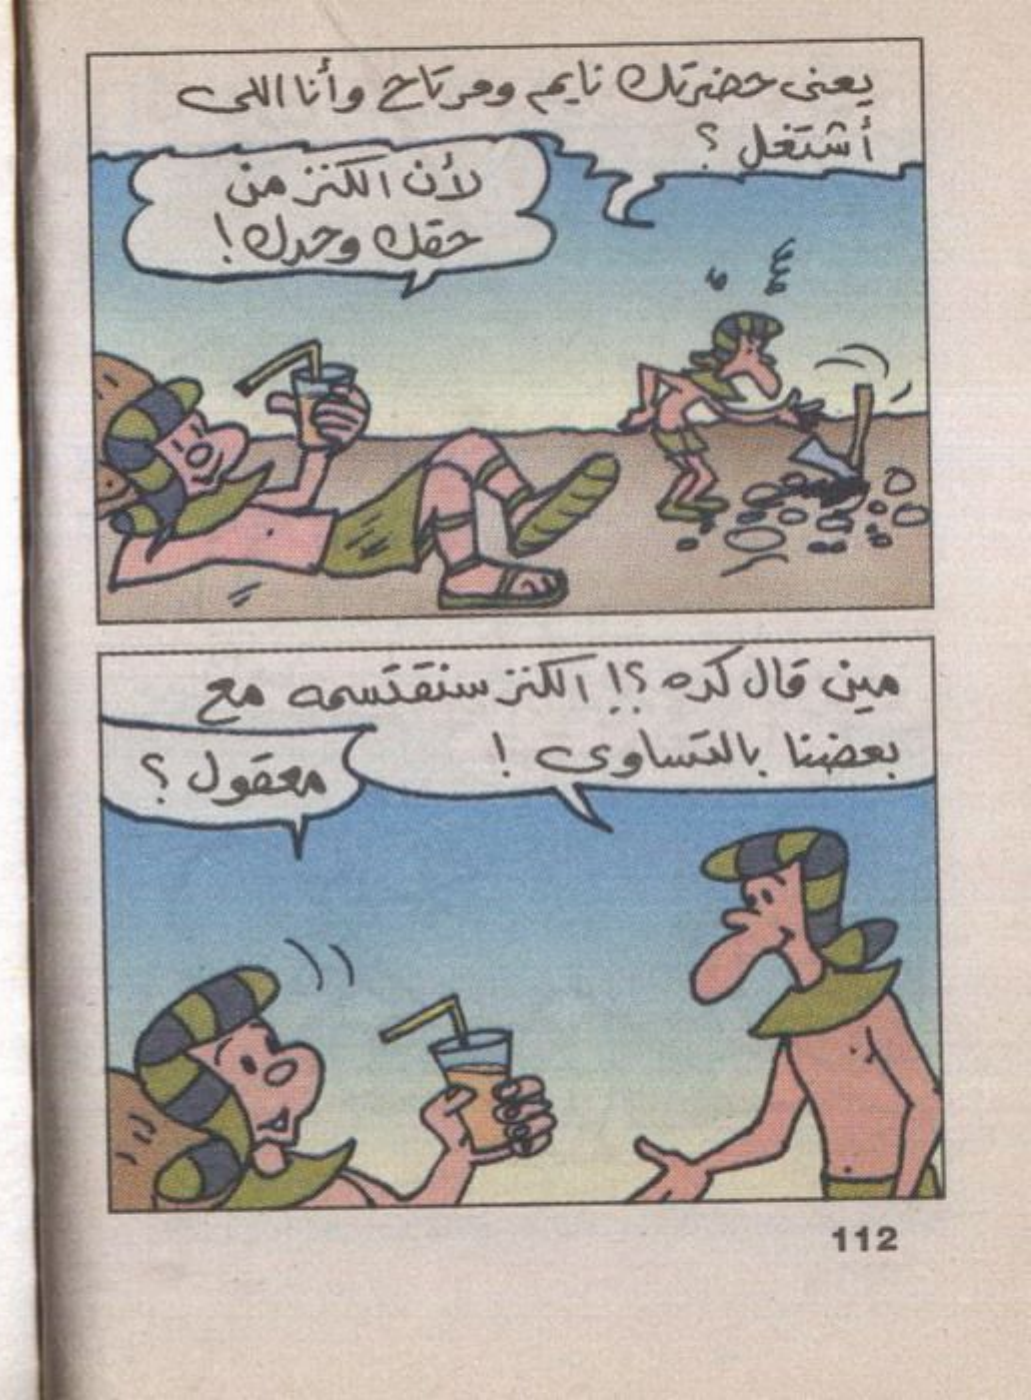 يعنى حضرتك نايم ومرتاح وأنا اللى
أشتغل ؟
لأن الكنز من
حقك وحدك !
مين قال كده ؟! الكنز سنقتسمه مع
بعضنا بالتساوى !
معقول ؟
112